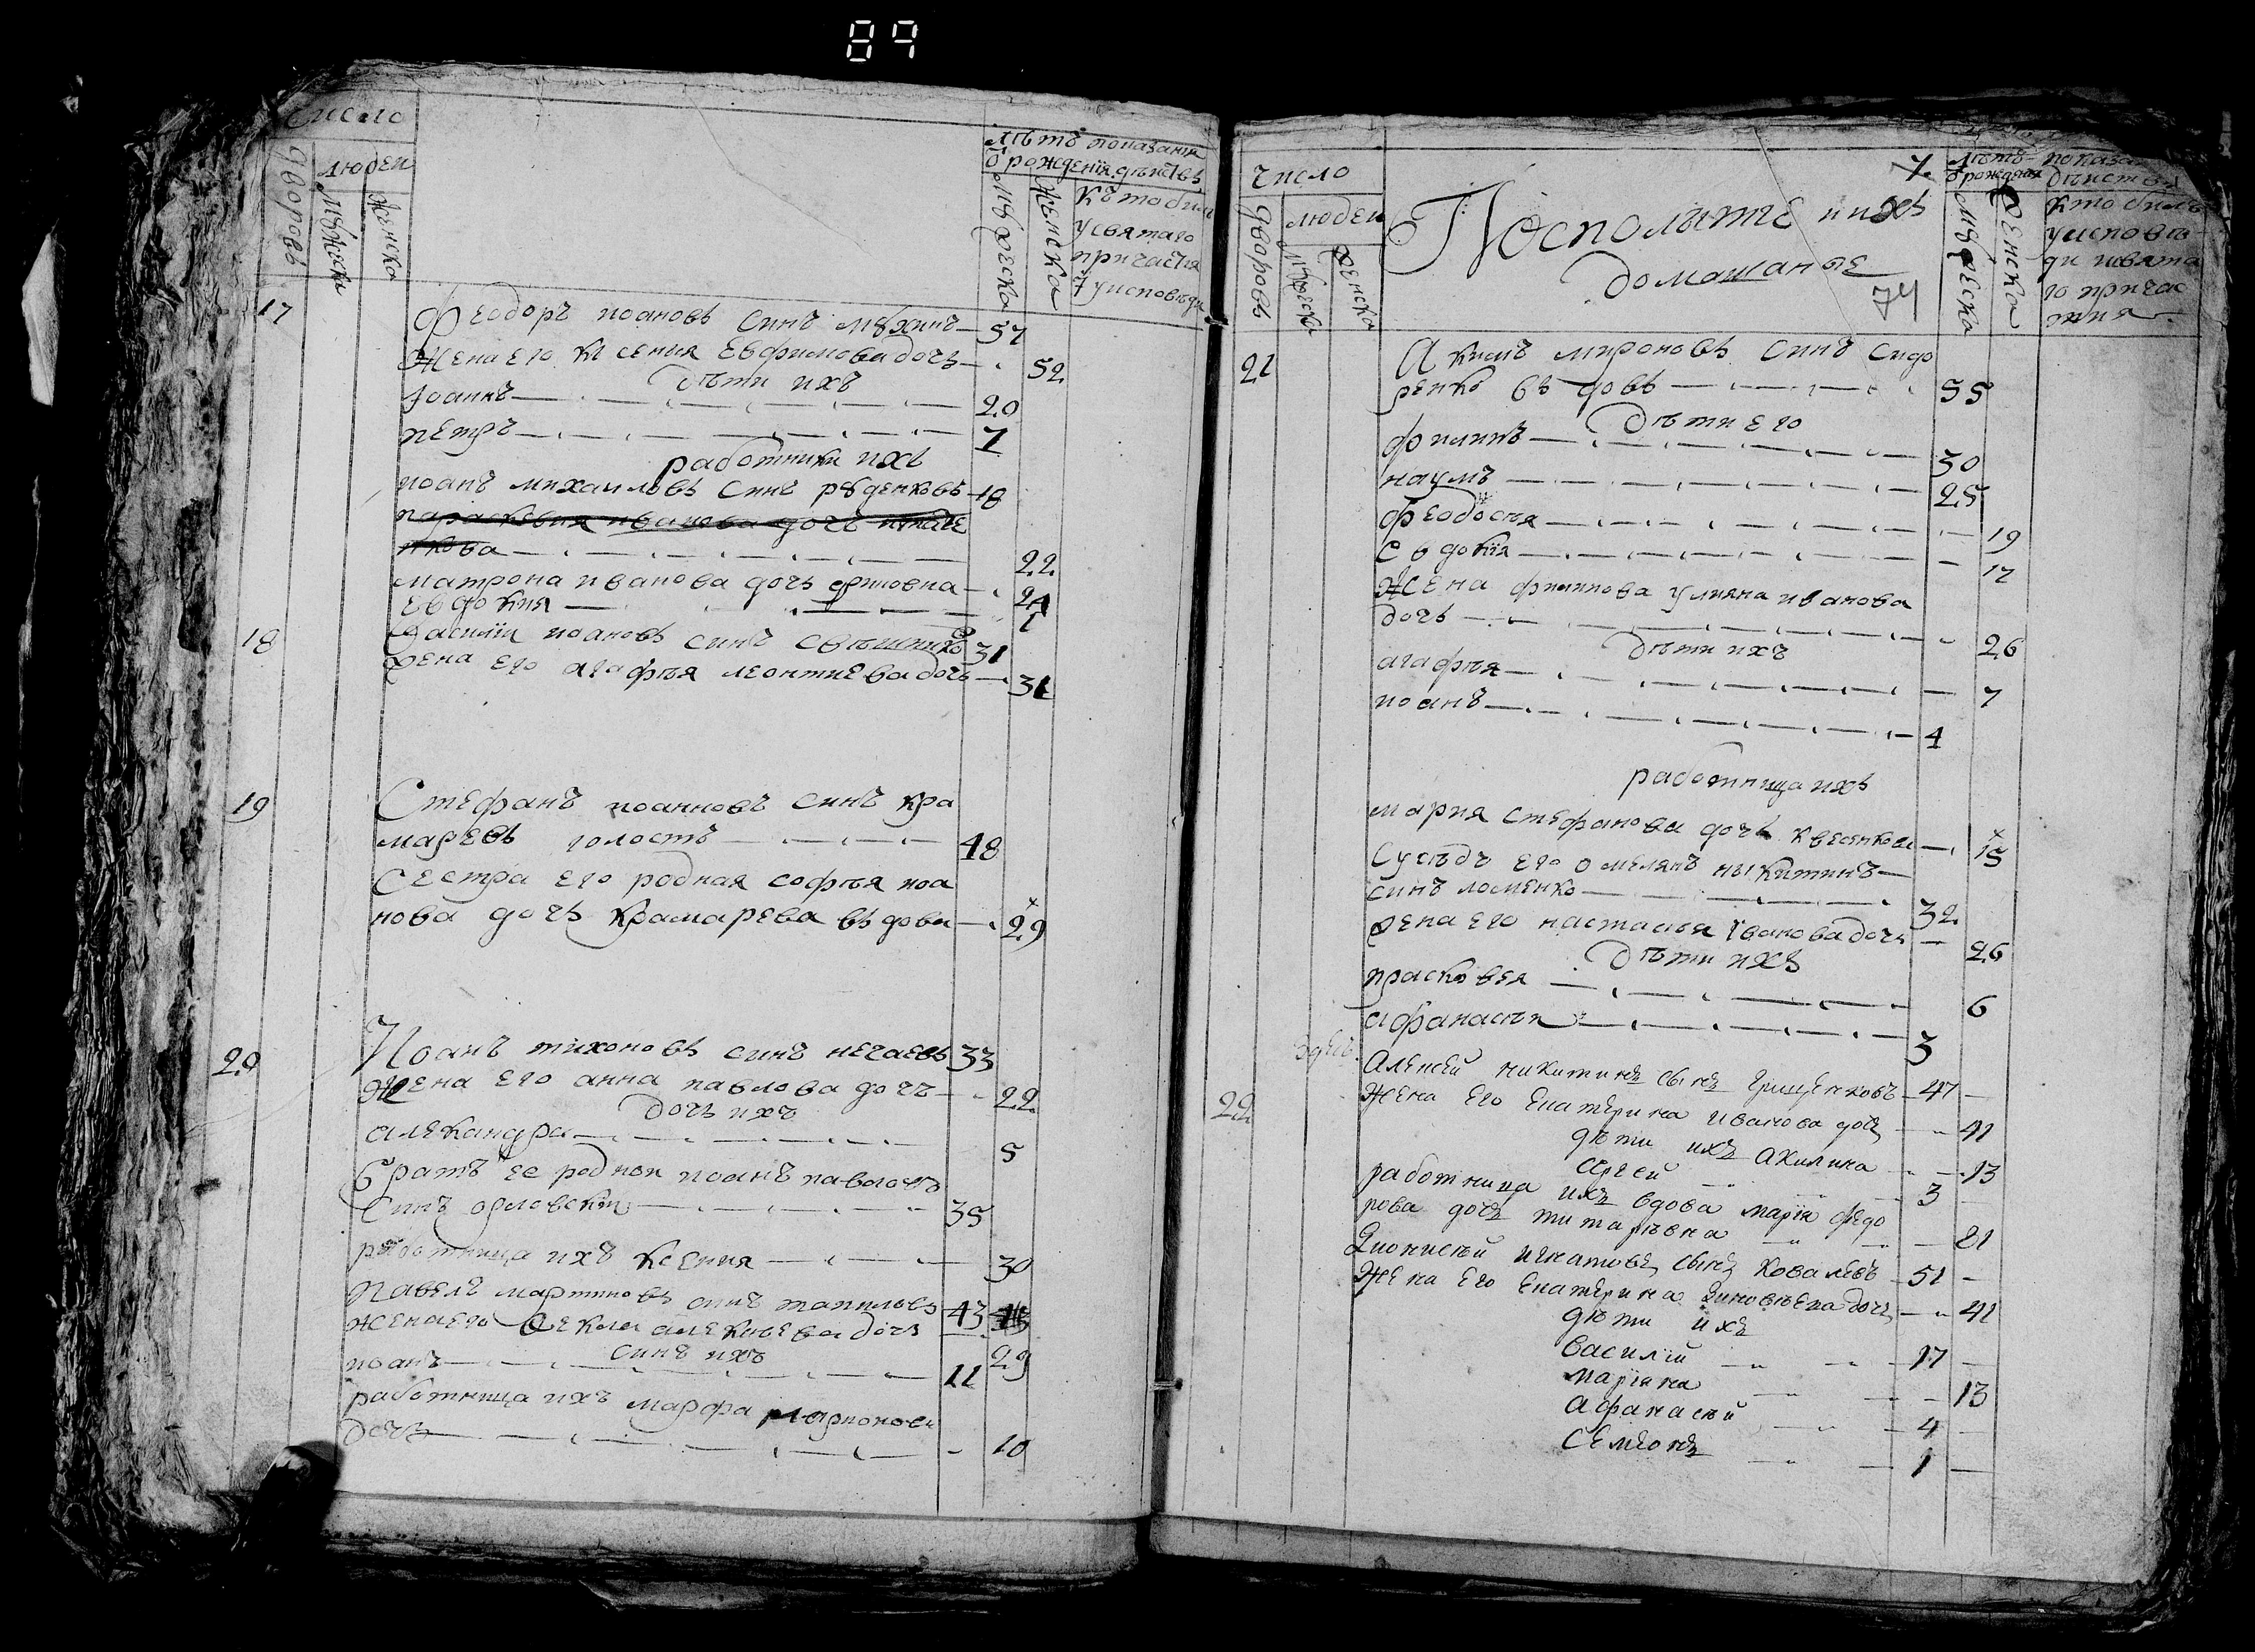 89
Число
дворовъ
людеи
мꙋжеска
женска
лѣтъ показанія
ѿ рождения дѣиств
мꙋжеска
женска
къто былъ
у святаго
причастия
и у исповѣди
17
Феодоръ иоановъ синъ мꙋхинъ — 57
Жена его ксения Евфимова дочъ — 52
дѣти ихъ
Іоаннъ — 20
петръ — 7
работники ихъ
иоанъ михаиловъ синъ рꙋденковъ — 18
параскевия иванова дочъ
нкова — 22
матрона иванова дочъ — 24
Евдокия — 1
18
Василїи иоановъ синъ 31
жена его агафѣя леонтиева дочъ — 31
19
Стефанъ иоанновъ синъ кра
маревъ холостъ — 48
Сестра его родная софѣя иоа
нова дочъ крамарева въдова — 29
20
Иоанъ тихоновъ синъ нечаевъ 33
Жена его анна павлова дочъ — 22
дочъ ихъ
александра — 5
братъ ее родныи иоанъ павловъ
синъ орловскїи — 35
работница ихъ ксения — 30
Павелъ мартиновъ синъ 43
жена его Ѳекла алекиева дочъ 29
синъ ихъ
иоанъ — 11
работница ихъ марфа
дочъ — 10
7.
Число
дворовъ
людеи
мꙋжеска
женска
Посполытие и ихъ
домашание
74
лѣтъ показа
ѿ рождения дѣиства
мꙋжеска
женска
кто былъ
у исповѣ
ди и свята
го причас
тия
21
Акимъ мироновъ синъ сидо
ренко въдовъ — 55
дѣти его
филипъ — 30
наумъ — 25
феодосѣя — 19
Евдокїя — 17
Жена филипова улияна иванова
дочъ — 26
дѣти ихъ
агафѣя — 7
иоанъ — 4
работница ихъ
мария стефанова дочъ — 15
сусѣдъ его омелянъ ныкитинъ —
синъ ломенко — 32
жена его настасѣя іванова дочъ — 26
дѣти ихъ
прасковея — 6
афанасѣи — 3
здѣсь
Алексей никитинъ сынъ грищенковъ — 47 —
22
жена его Екатерина иванова дочъ — 41
дѣти ихъ акилина — 13
сергей — 3 —
работница ихъ вдова марїя федо
рова дочъ титаръвна — 81
Дионисѣй игнатовъ сынъ ковалевъ — 51 —
жена его Екатерина зиновѣева дочъ — 41
дѣти ихъ
василїй — 17 —
марїана — 13
афанасѣй — 4 —
семїонъ — 1 —